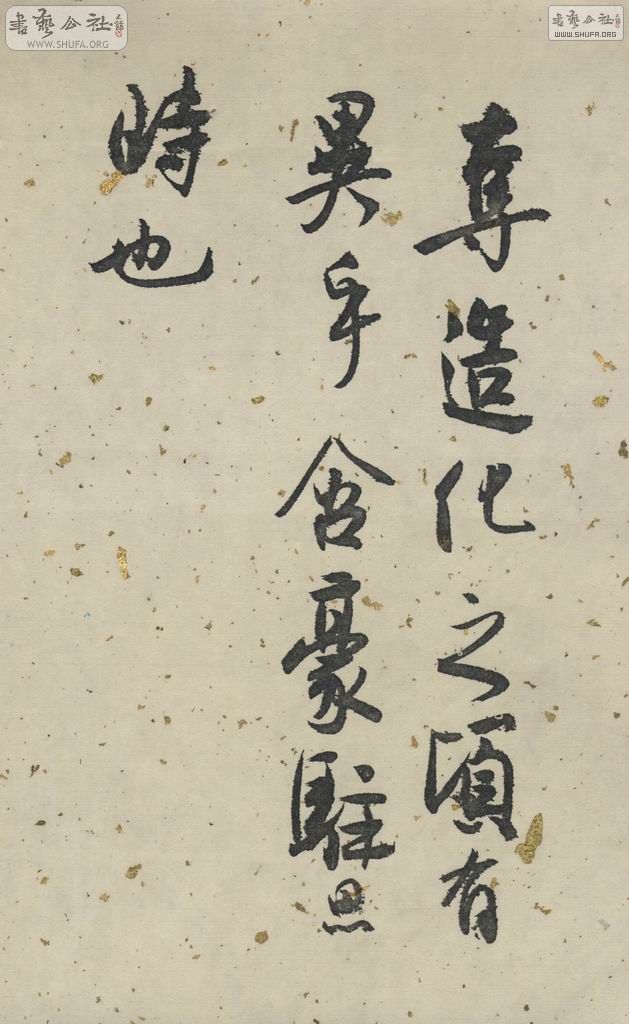 奪造化之頃有
異乎含豪駐思
時也
書藝公社
WWW.SHUFA.ORG
書藝公社
WWW.SHUFA.ORG